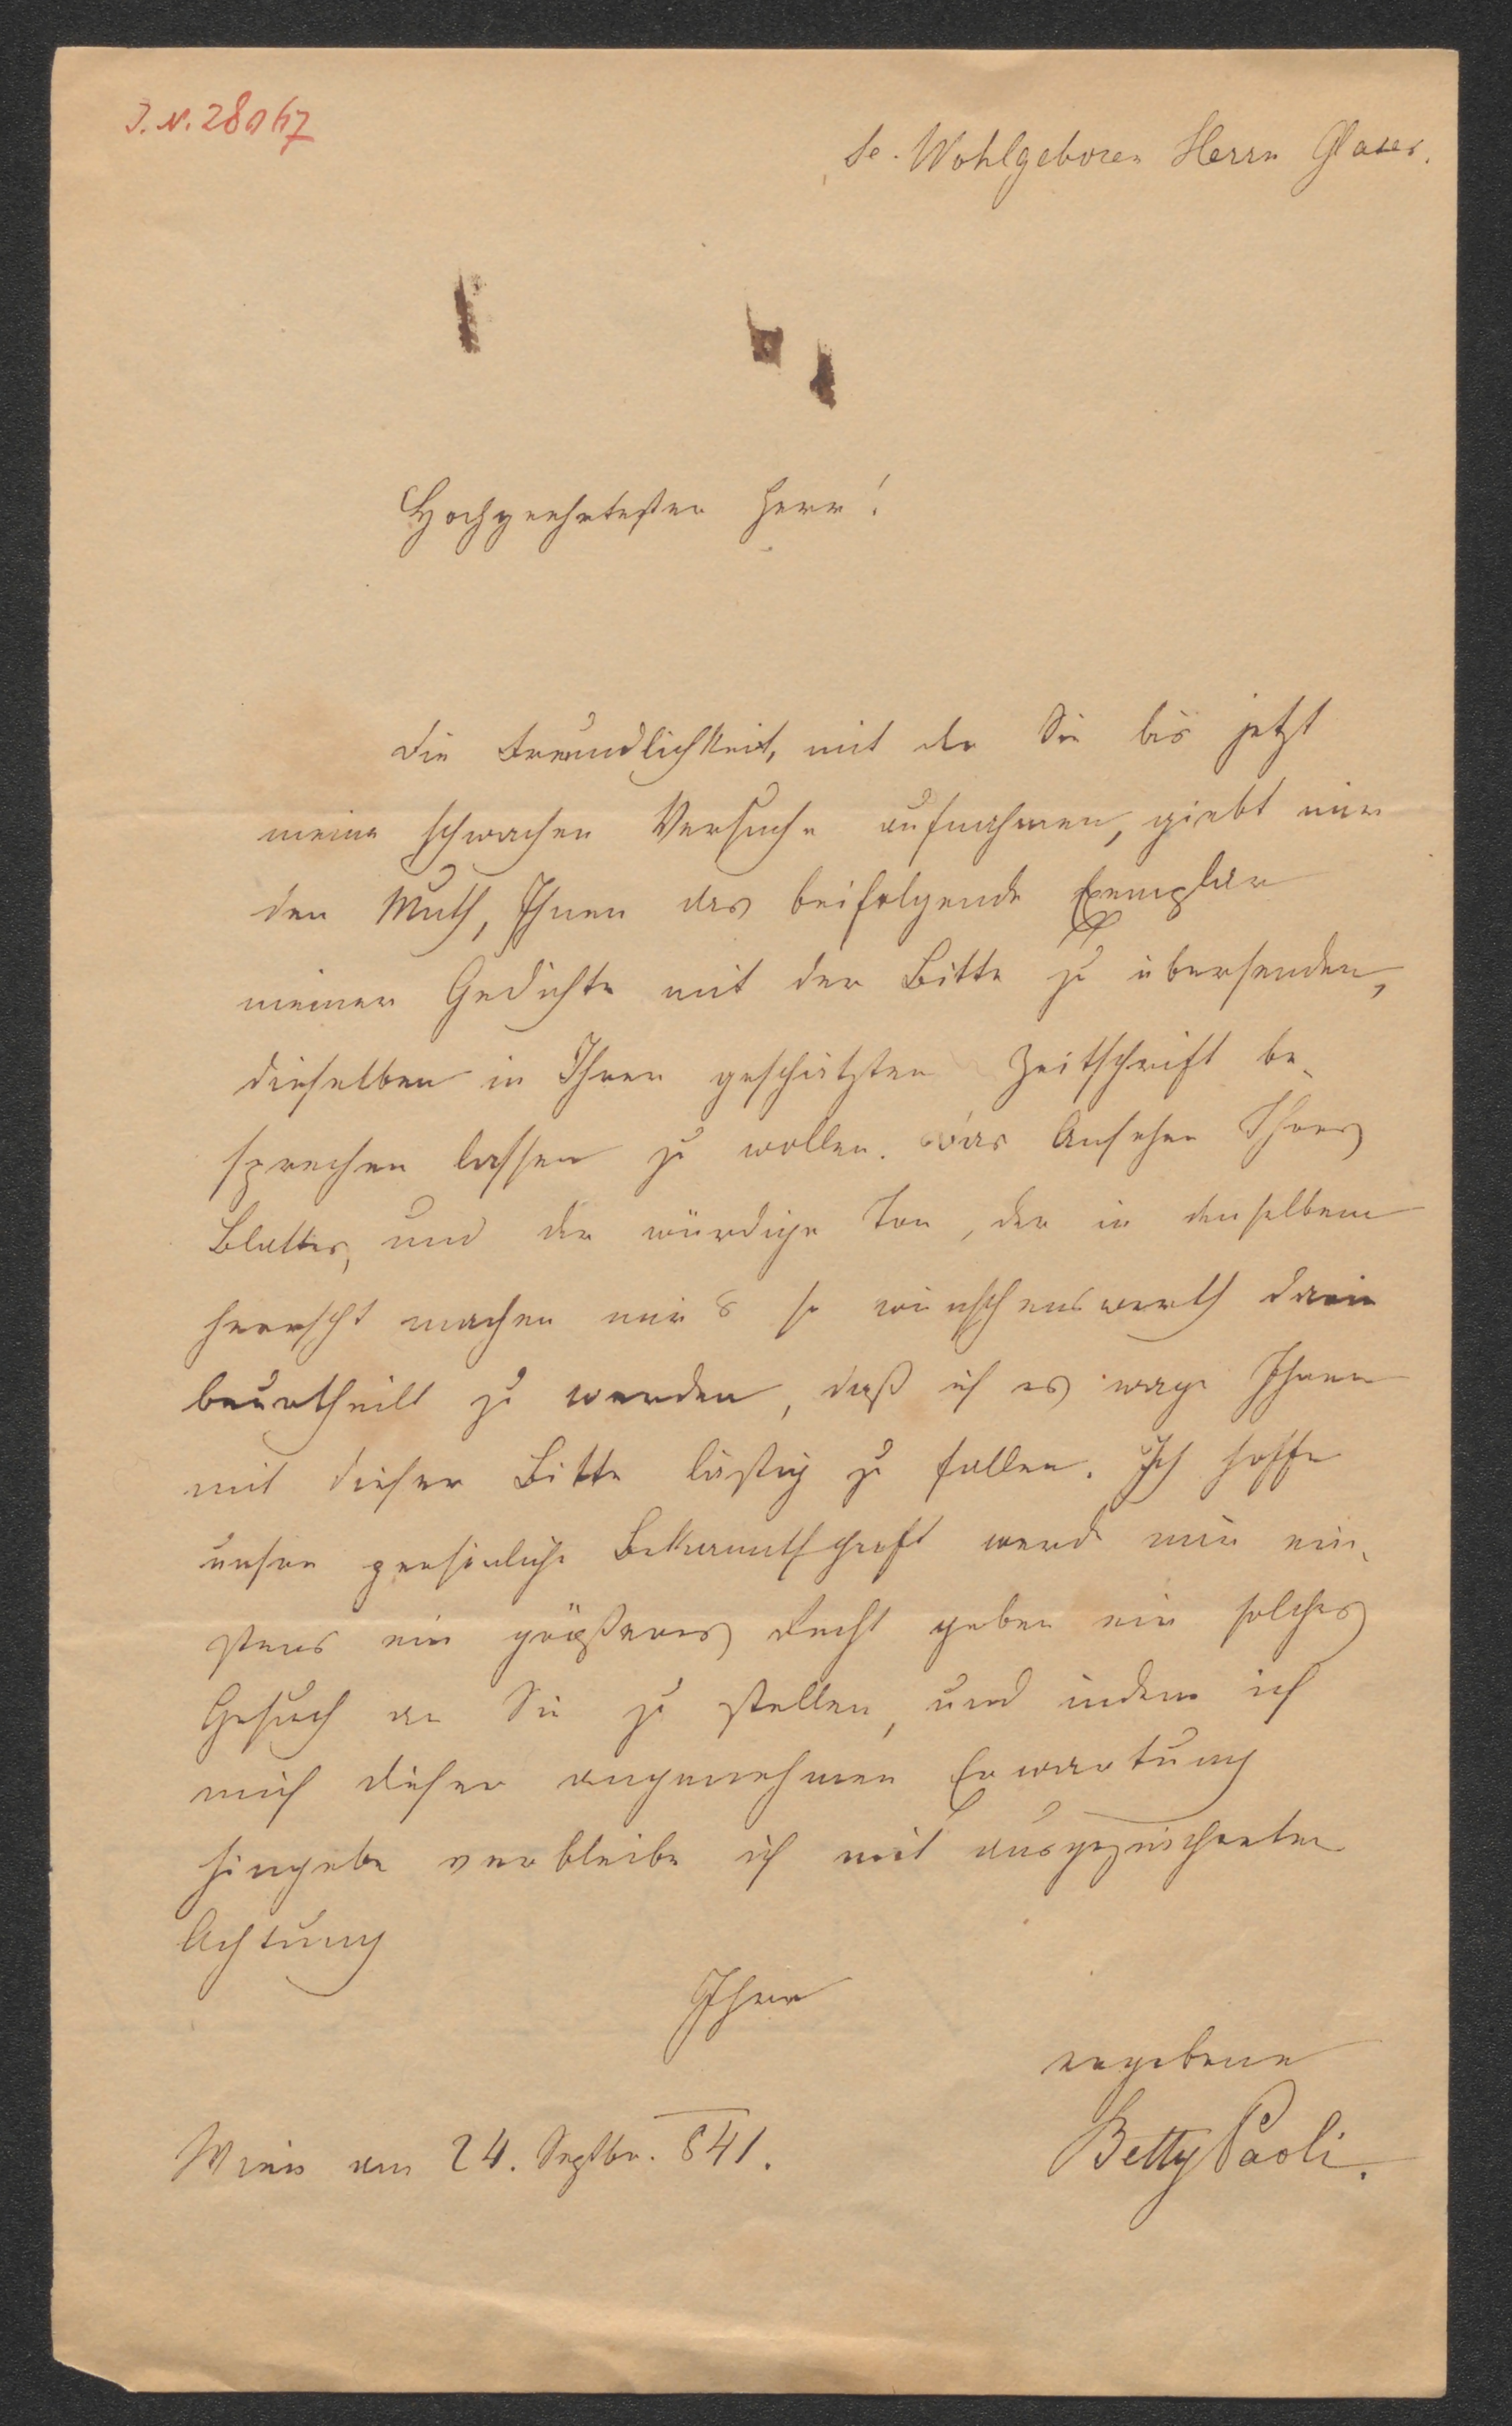 J. N. 28067
Se. Wohlgeboren Herrn Glaser.
Hochgeehrtester Herr!
Die Freundlichkeit, mit der Sie bis jetzt
meine schwachen Versuche aufnahmen, giebt mir
den Muth, Ihnen das beifolgende Exemplar
meiner Gedichte mit der Bitte zu übersenden,
dieselben in Ihrer geschätzten Zeitschrift be-
sprechen lassen zu wollen. Das Ansehen Ihres
Blattes, und der würdige Ton, der in demselben
herrscht machen mir's so wünschenswerth darin
beurtheilt zu werden, daß ich es wage Ihnen
mit dieser Bitte lästig zu fallen. Ich hoffe
unsre persönliche Bekanntschaft werde mir ein-
stens ein größeres Recht geben ein solches
Gesuch an Sie zu stellen, und indem ich
mich dieser angenehmen Erwartung
hingebe verbleibe ich mit ausgezeichneter
Achtung
Ihre
ergebene
Wien am 24. Septbr. 841.
Betty Paoli.